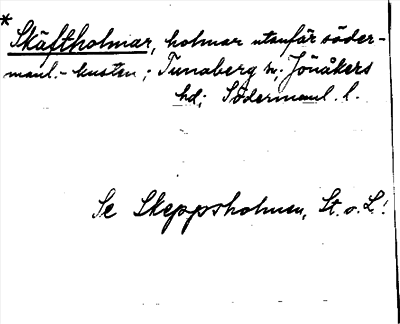 * Skäftholmar, holmar utanför söder-
manl.-kusten; Tunaberg sn; Jönåkers
hd; Södermanl. l.
Se Skeppsholmen, St. o. L.!